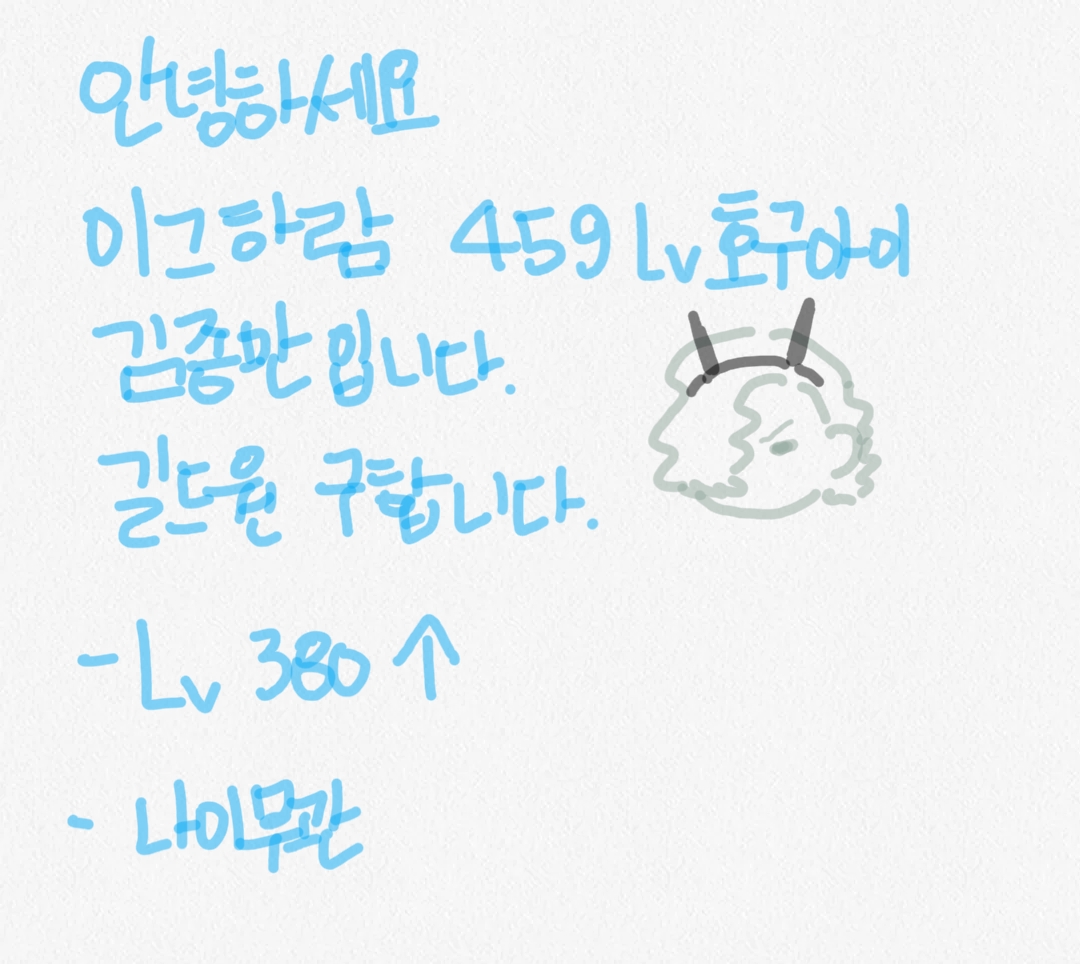 안녕하세요
이그하람 459 Lv 호구아이
김종만입니다.
길드원 구합니다.
- Lv 380 ↑
- 나이무관